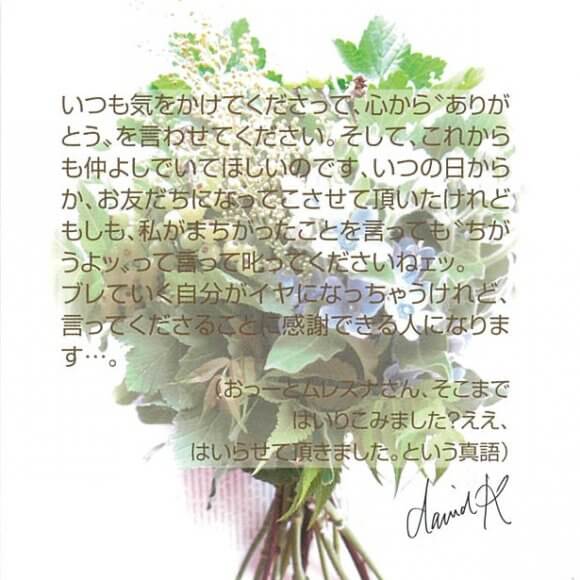 いつも気をかけてくださって、心から〝ありが
とう〟を言わせてください。そして、これから
も仲よしでいてほしいのです、いつの日から
か、お友だちになってこさせて頂いたけれど
もしも、私がまちがったことを言っても〝ちが
うよッ〟って言って叱ってくださいねェッ。
ブレていく自分がイヤになっちゃうけれど、
言ってくださることに感謝できる人になりま
す…。
（おっーとムレスナさん、そこまで
はいりこみました？ええ、
はいらせて頂きました。という真語）
david K